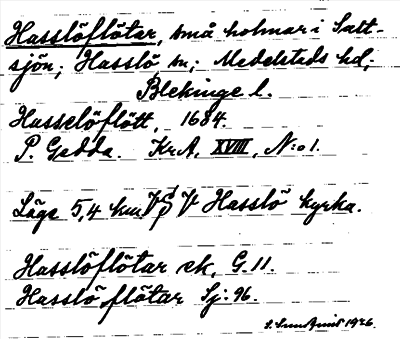 Hasslöflötar, små holmar i Salt-
sjön; Hasslö sn; Medelsteds hd;
Blekinge l.
Hasselöflött, 1684.
P. Gedda. Kr.A, XVIII, N:o 1.
Läge 5,4 km V Hasslö kyrka.
Hasslöflötar ek. G. 11.
Hasslö flötar Sj: 96.
1926